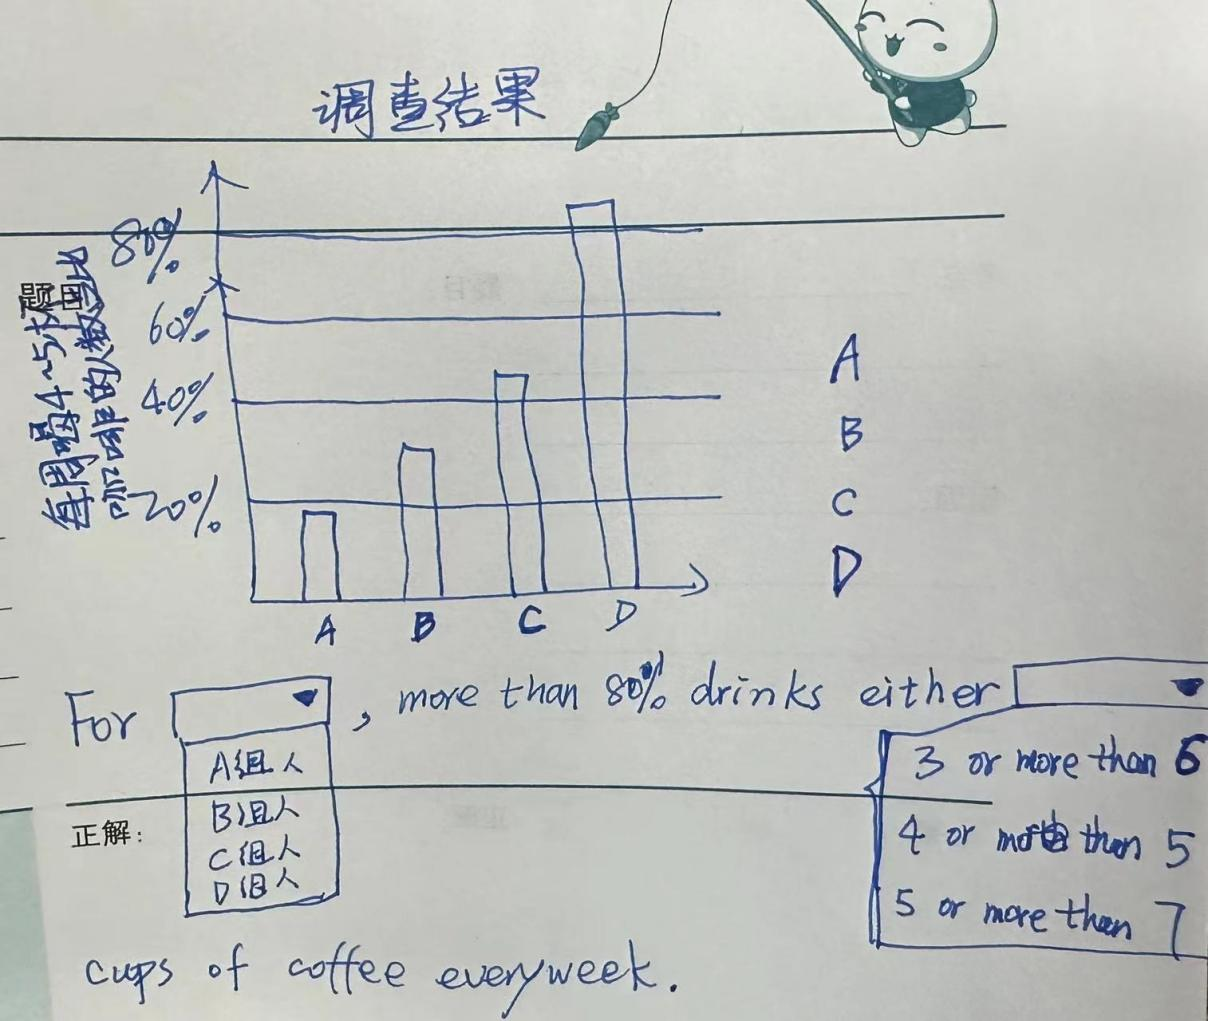 调查结果
80%
60%
40%
20%
题目
每周喝4~5杯
咖啡的人数占比
A B C D
A
B
C
D
For , more than 80% drinks either
A组人
B组人
C组人
D组人
3 or more than 6
4 or more than 5
5 or more than 7
正解:
cups of coffee everyweek.